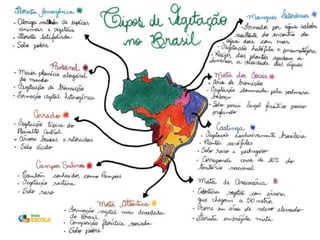 Tipos de Vegetação
no Brasil
Floresta Amazônica
- Abriga milhões de espécies
animais e vegetais
- Floresta latifoliada
- Solo pobre
Pantanal
- Maior planície alagável
do mundo
- Vegetação de transição
- Formação vegetal heterogênea
Cerrado
- Vegetação típica do
Planalto Central
- Árvores baixas e retorcidas
- Solo ácido
Campos Sulinos
- Também conhecidos como Pampas
- Vegetação rasteira
- Solo raso
Mata Atlântica
- Formação vegetal mais devastada
do Brasil
- Composição florística variada
- Solo pobre
Mangues Litorâneos
- Formados por água salobra
resultante do encontro da
água doce com mar
- Vegetação halófila e pneumatófora
- Raízes das plantas ajudam a
as oscilações das águas
Mata dos Cocais
- Área de transição
- Vegetação dominada pela palmeira
babaçu
- Solo possui lençol freático pouco
profundo
Caatinga
- Vegetação exclusivamente brasileira
- Plantas xerófilas
- Solo raso e pedregoso
- Corresponde cerca de 10% do
território nacional
Mata de Araucária
- Cobertura vegetal com árvores
que chegam a 50 metros
- Ocorre em áreas de relevo elevado
- Floresta ombrófila mista
Brasil
ESCOLA